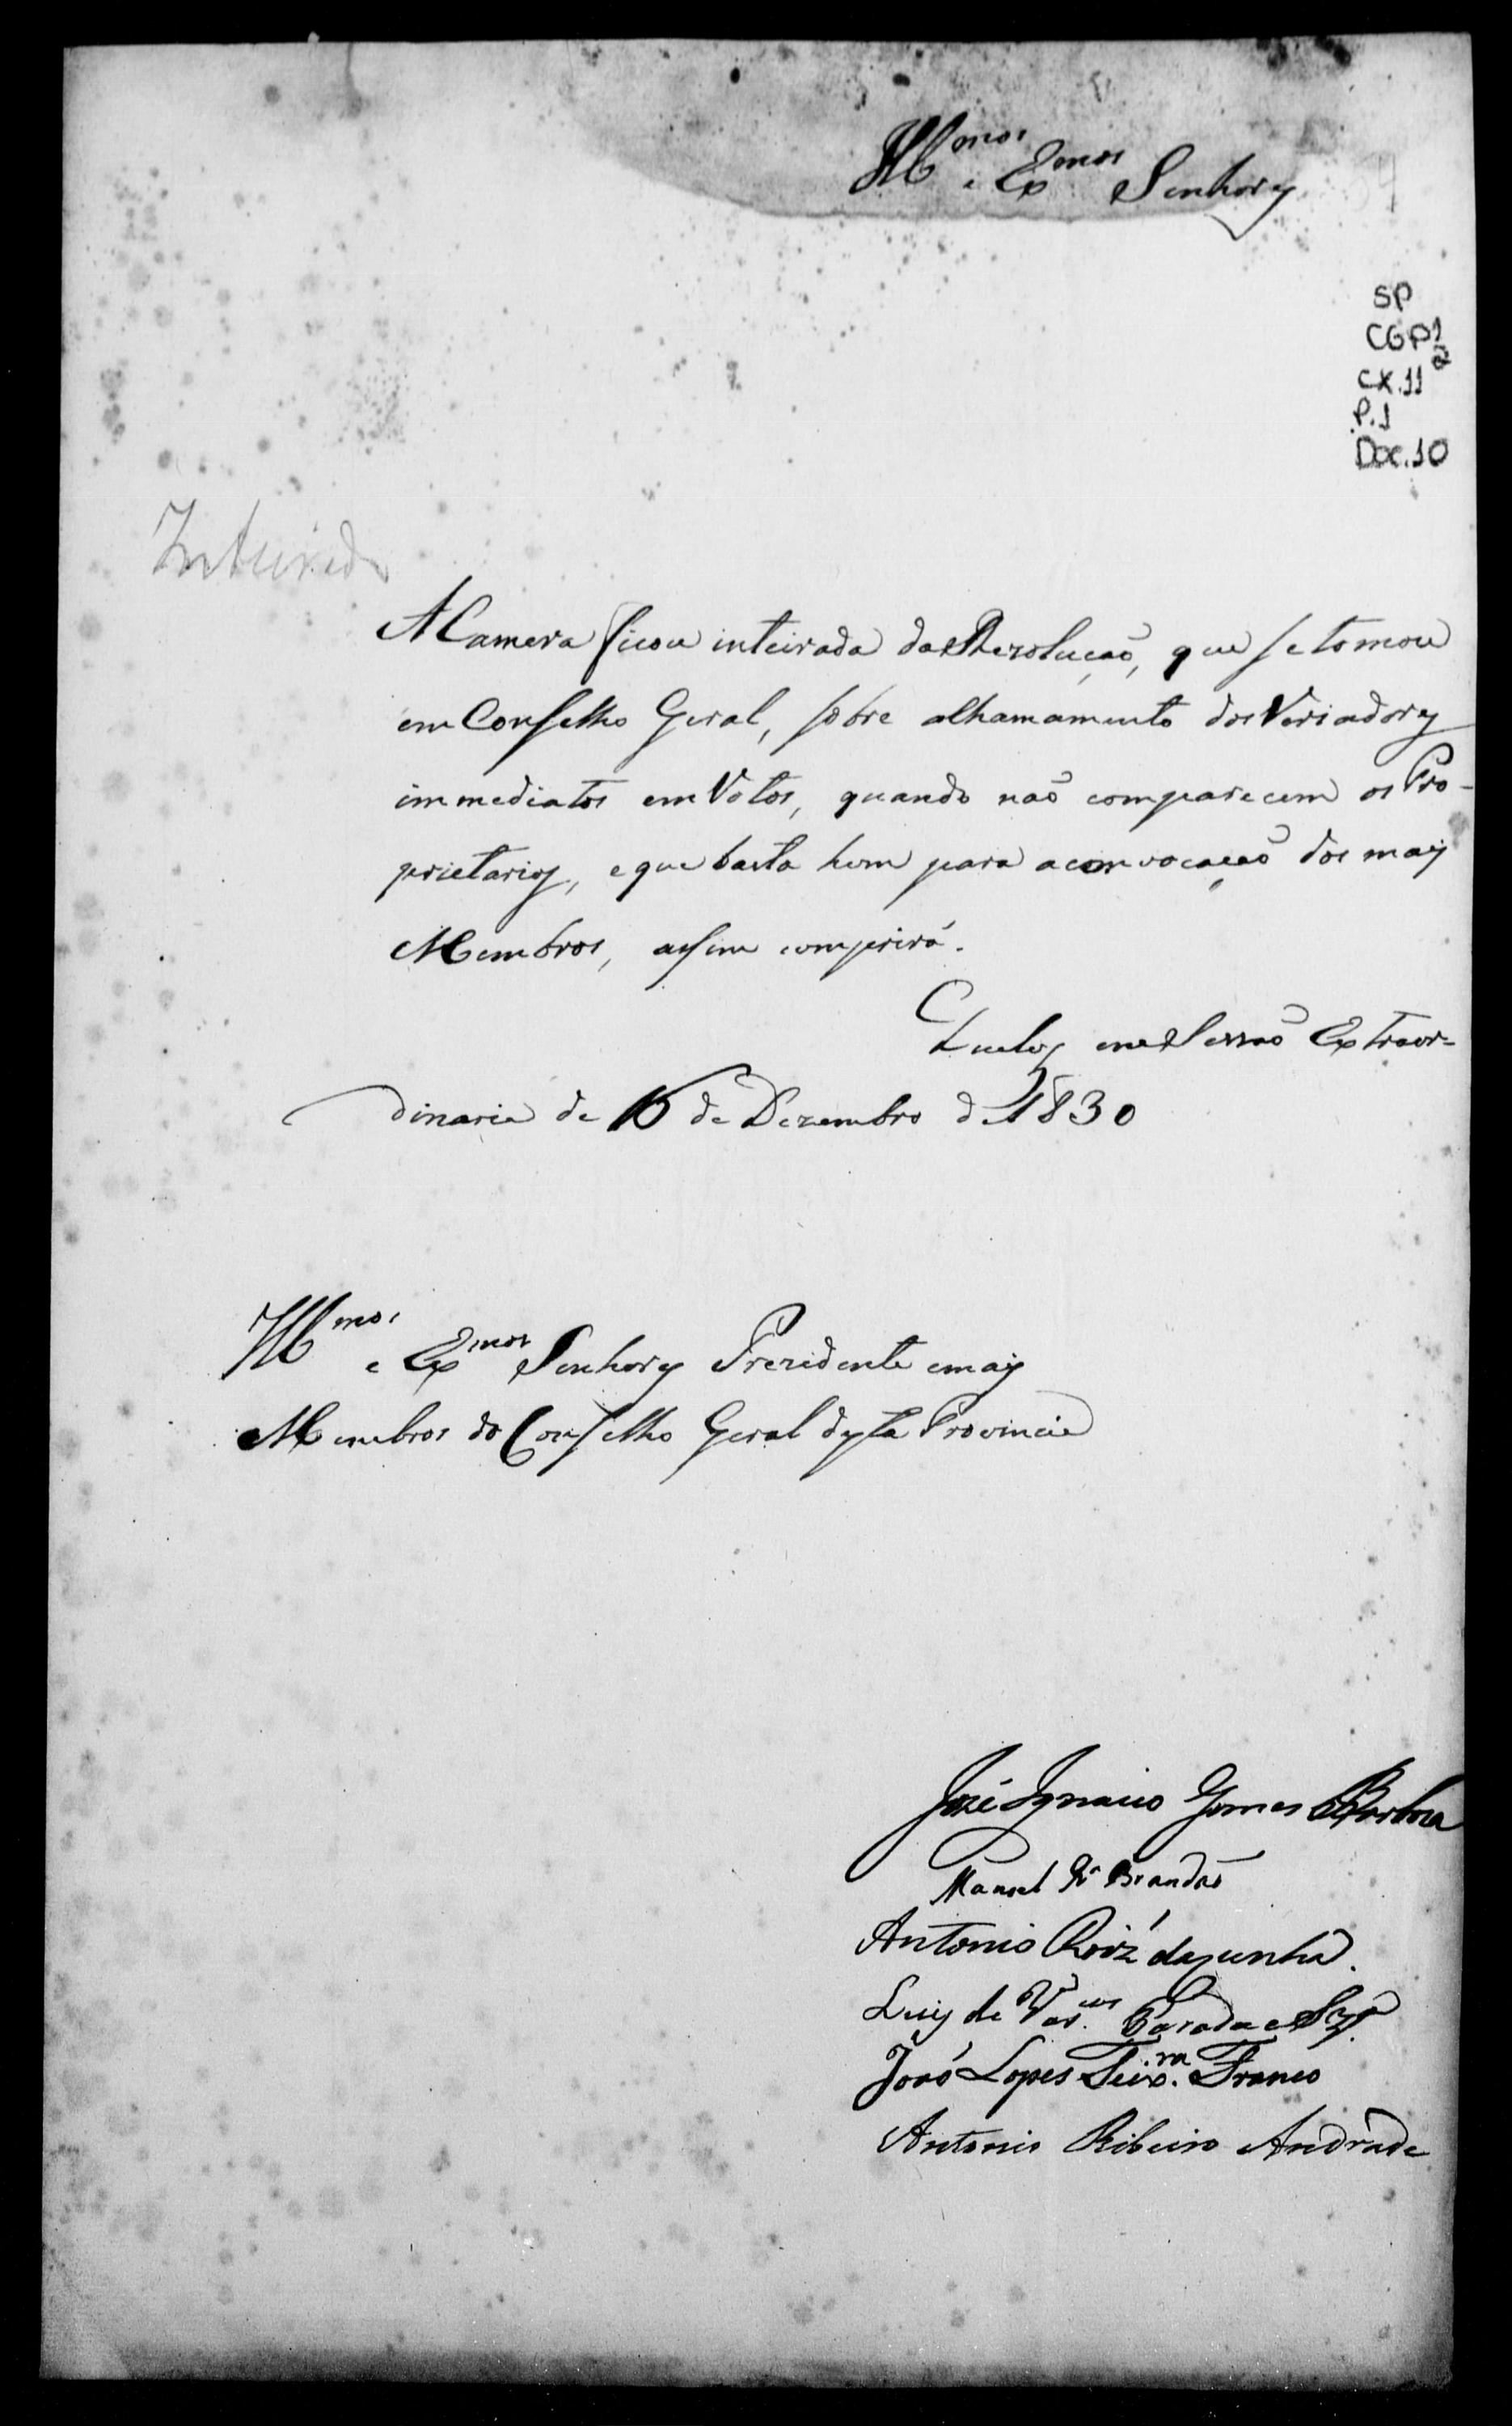 Illmos e Exmos Senhores
SP
CGP1
2
CX.11
P.1
Doc.10
Inteirado
A Camera ficou inteirada da Rezolução, que se tomou
em Conselho Geral, sobre o chamamento dos Veriadores
immediatos em Votos, quando não comparecem os Pro-
prietarios, e que basta hum para a convocação dos mais
Membros, assim comprirá.
Queluz em Sessão Extraor-
dinaria de 16 de Dezembro de 1830
Illmos e Exmos Senhores Prezidente e mais
Membros do Conselho Geral desta Provincia
José Ignacio Gomes Barboza
Manoel Brandão
Antonio Roiz da Cunha.
Luis de Vas.cos Parada e Sza
João Lopes Teixra Franco
Antonio Ribeiro Andrade